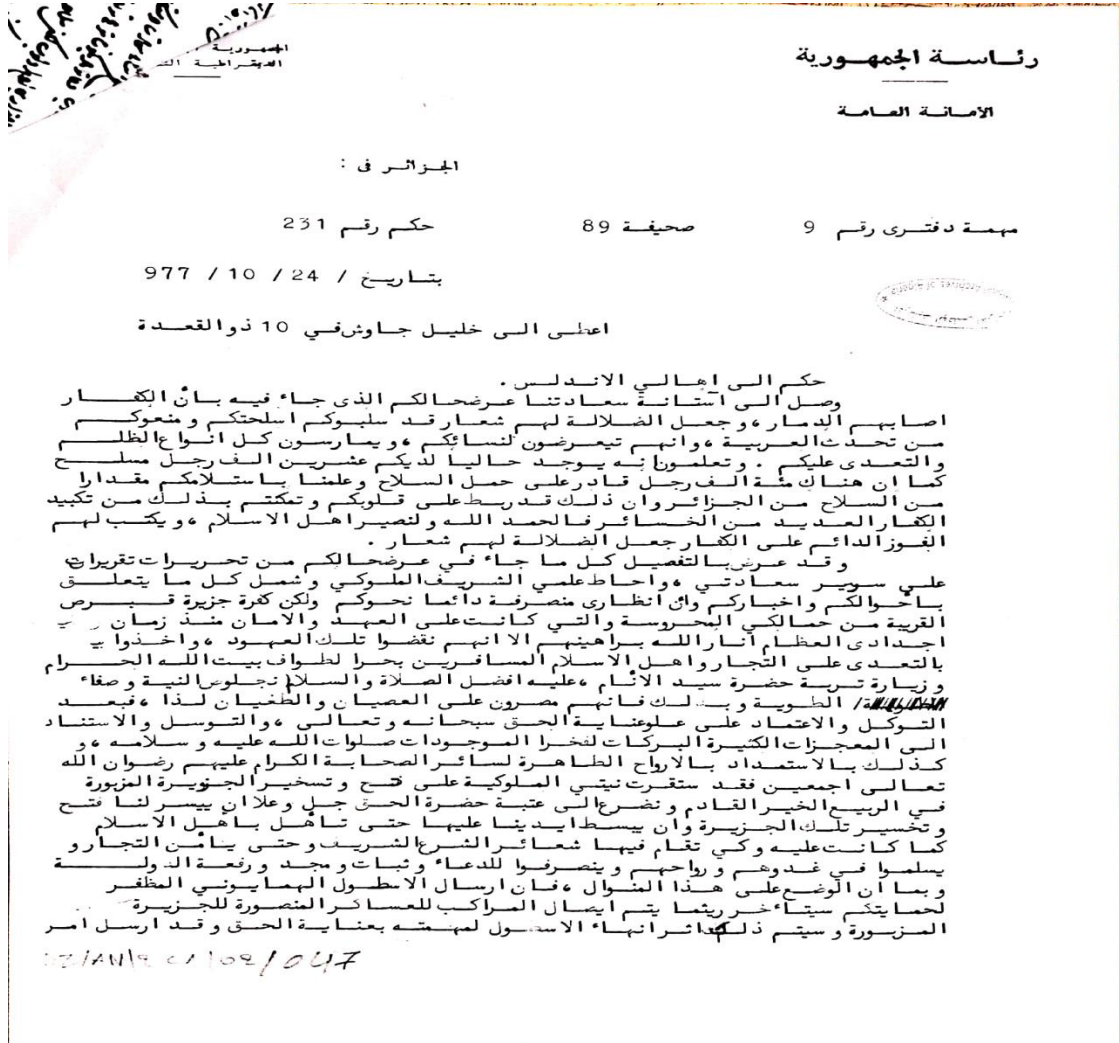 رئاسة الجمهورية
الجمهورية
الديمقراطية
الامانة العامة
الجزائر فى :
مهمة دفترى رقم 9 صحيفة 89 حكم رقم 231
بتاريخ / 24 / 10 / 977
اعطى الى خليل جاوش في 10 ذو القعدة
حكم الى اهالي الاندلس .
وصل الى آستانة سعادتنا عرضحالكم الذى جاء فيه بأن الكفار
اصابهم الدمار ، وجعل الضلالة لهم شعار قد سلبوكم اسلحتكم و منعوكم
من تحدث العربية ، وانهم تيعرضون لنسائكم ، و يمارسون كل انواع الظلم
والتعدى عليكم . وتعلمون انه يوجد حاليا لديكم عشرين الف رجل مسلح
كما ان هناك مئة الف رجل قادر على حمل السلاح وعلمنا باستلامكم مقدارا
من السلاح من الجزائر وان ذلك قد ربط على قلوبكم و تمكنتم بذلك من تكبيد
الكفار العديد من الخسائر فالحمد الله ولنصير اهل الاسلام ، و يكتب لهم
الفوز الدائم على الكفار جعل الضلالة لهم شعار .
و قد عرض بالتفصيل كل ما جاء في عرضحالكم من تحريرات تقريرات
علي سوير سعادتي ، واحاط علمي الشريف الملوكي و شمل كل ما يتعلق
بأحوالكم و اخباركم وان انظارى منصرفة دائما نحوكم ولكن كفرة جزيرة قبرص
القريبة من حمالكي المحروسة والتي كانت على العهد والامان منذ زمان
اجدادى العظام أنار الله براهينهم الا انهم نقضوا تلك العهود ، واخذوا
بالتعدى على التجار و اهل الاسلام المسافرين بحرا لطواف بيت الله الحرام
و زيارة تربة حضرة سيد الأنام ، عليه افضل الصلاة والسلام نجلوس النية و صفاء
الطوية و بذلك فانهم مصرون على العصيان والطغيان لذا ، فبعد
التوكل والاعتماد على علو عناية الحق سبحانه و تعالى ، والتوسل والاستناد
الى المعجزات الكثيرة البركات لفخرا الموجودات صلوات الله عليه و سلامه ، و
كذلك بالاستمداد بالارواح الطاهرة لسائر الصحابة الكرام عليهم رضوان الله
تعالى اجمعين فقد ستقرت نيتي الملوكية على فتح و تسخير الجزيرة المزبورة
في الربيع الخير القادم و نضرع الى عتبة حضرة الحق جل وعلا ان ييسر لنا فتح
و تخسير تلك الجزيرة وان يبسط ايدينا عليها حتى تأهل بأهل الاسلام
كما كانت عليه و كي تقام فيها شعائر الشرع الشريف و حتى يأمن التجار و
يسلموا في غدوهم و رواحهم و ينصرفوا للدعاء و ثبات و مجد و رفعة الدولة
و بما أن الوضع على هذا المنوال ، فان ارسال الاسطول الهمايوني المظفر
لحمايتكم سيتاءخر ريثما يتم ايصال المراكب للعساكر المنصورة للجزيرة
المزبورة و سيتم ذلك اثر انهاء الاسطول لمهمته بعناية الحق و قد ارسل امر
/02/047